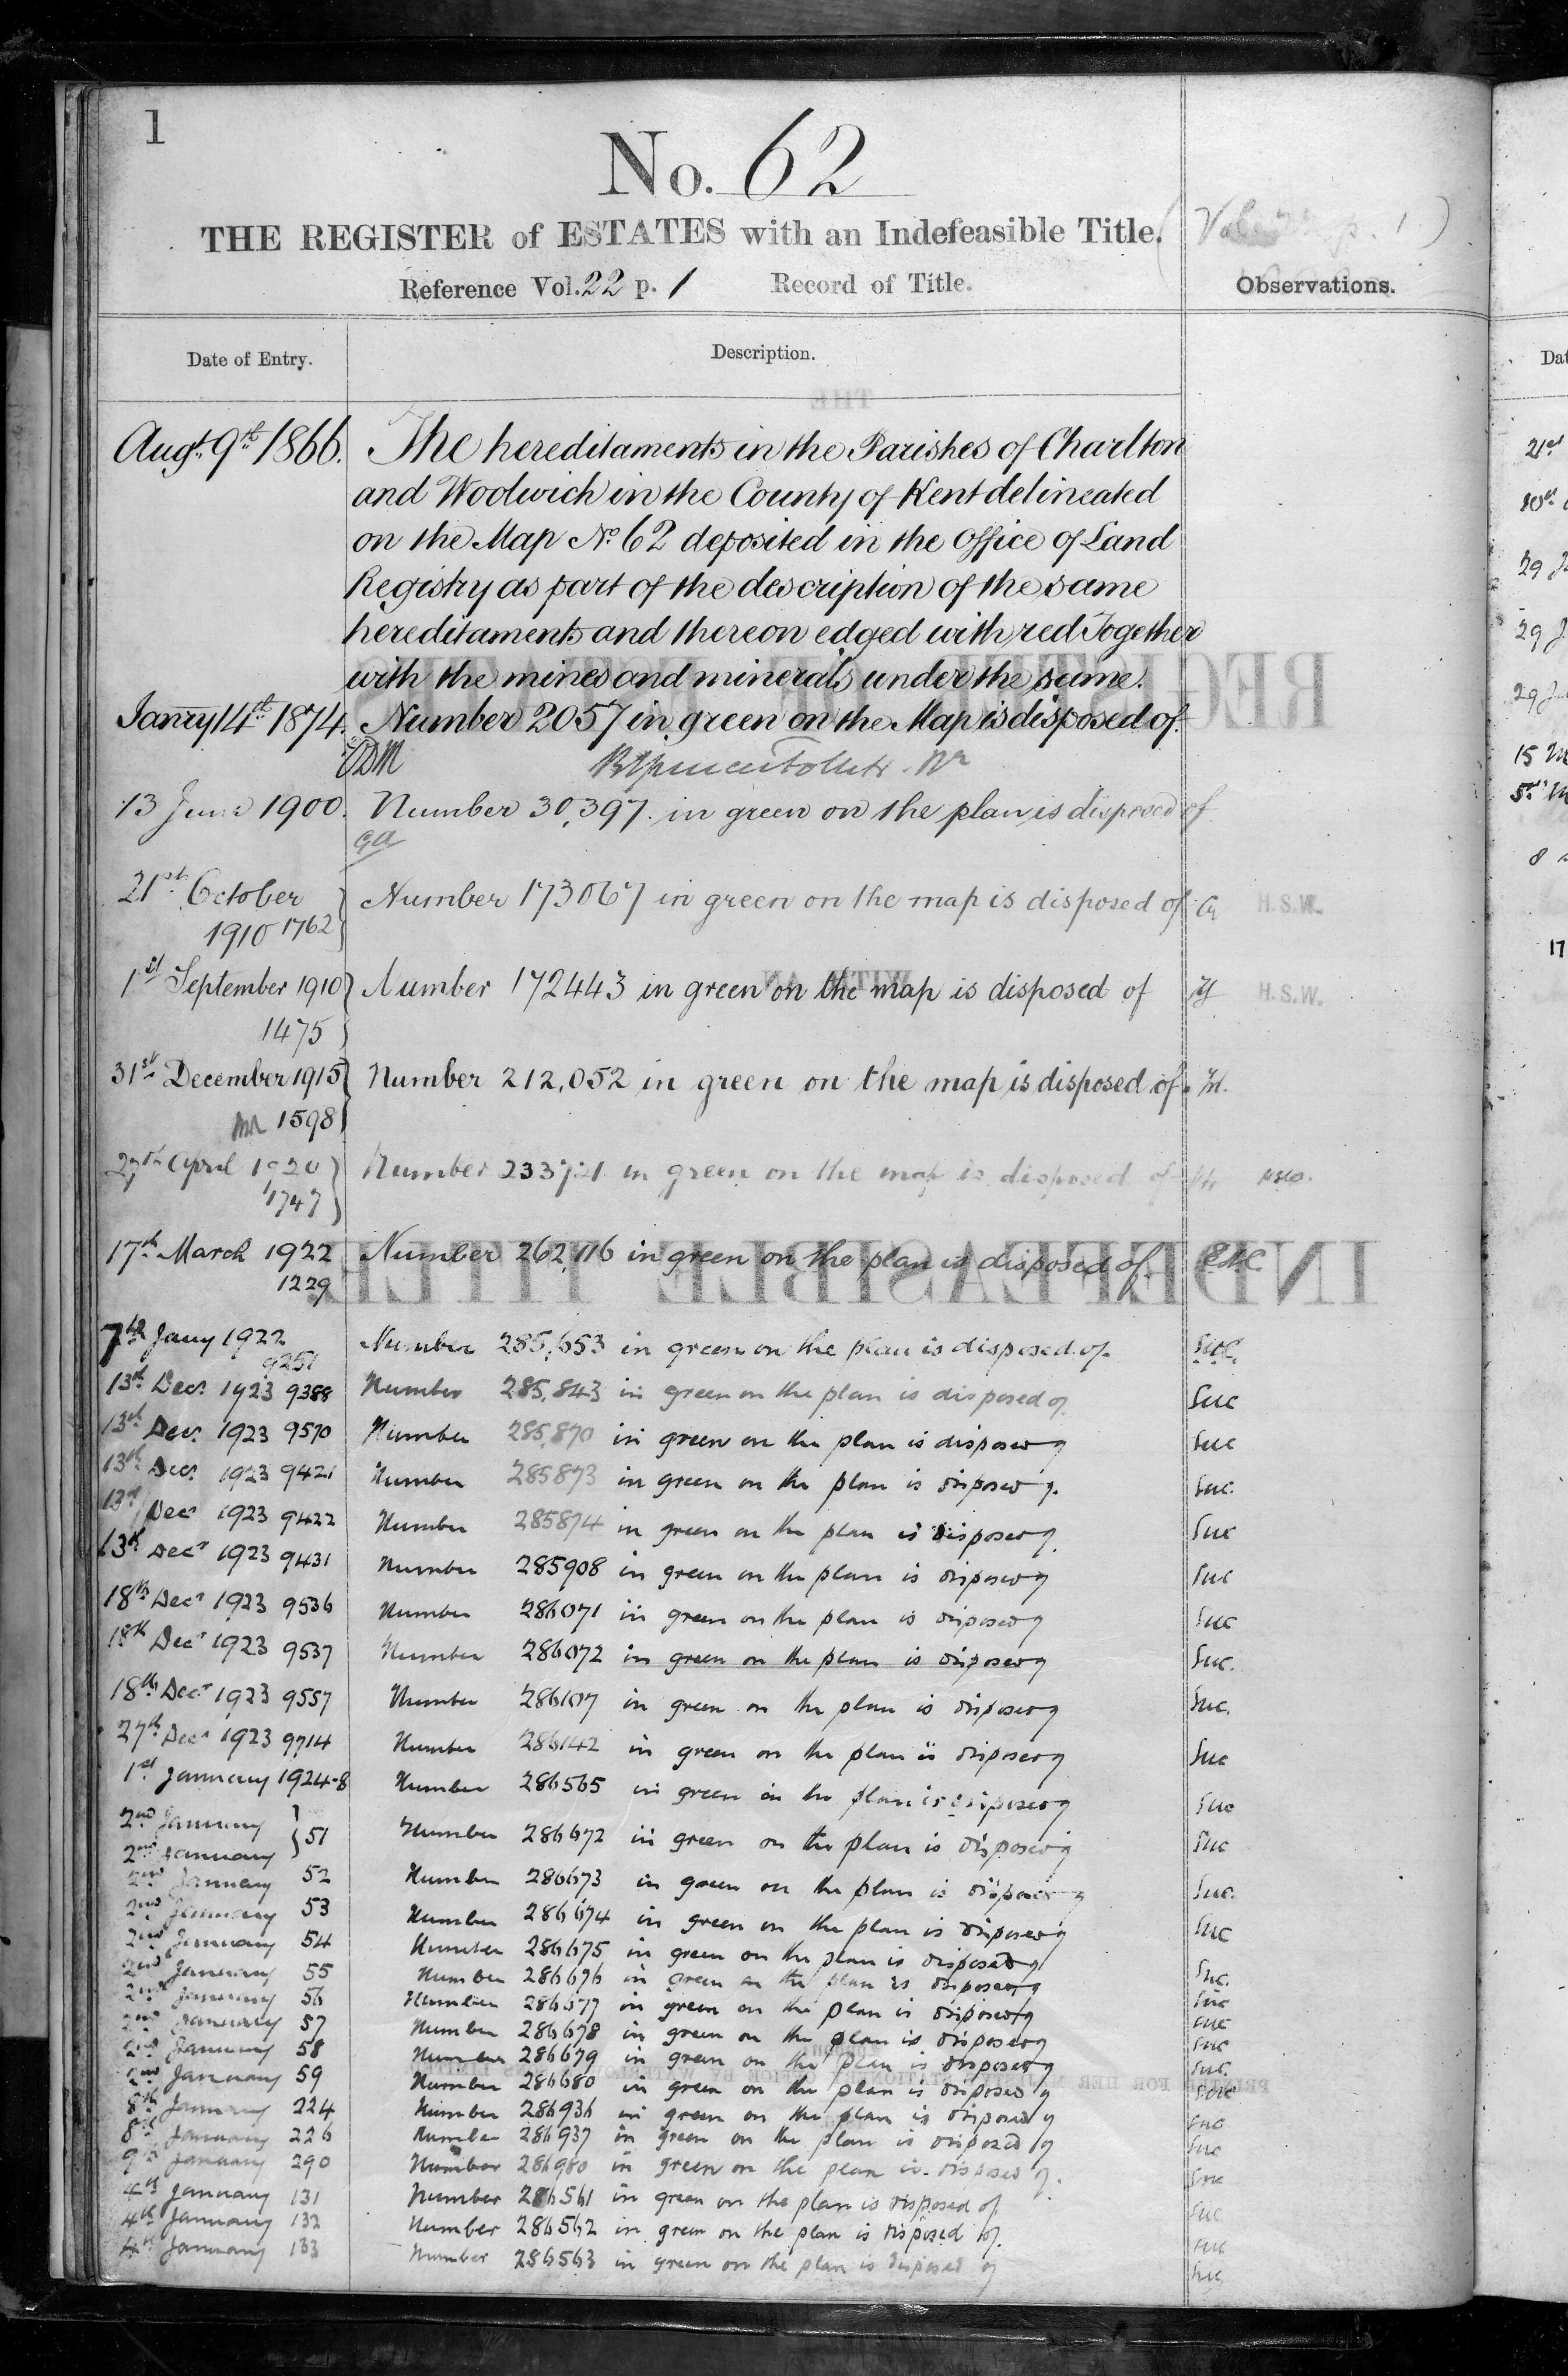 1
No. 62
THE REGISTER of ESTATES with an Indefeasible Title.
Reference Vol. 22 p. 1 Record of Title.
Observations.
Date of Entry. Description.
Augt. 9th 1866. The hereditaments in the Parishes of Charlton
and Woolwich in the County of Kent delineated
on the Map No. 62 deposited in the Office of Land
Registry as part of the description of the same
hereditaments and thereon edged with red Together
with the mines and minerals under the same.
Janry 14th 1874. Number 2057 in green on the Map is disposed of.
13 June 1900. Number 30,397 in green on the plan is disposed of
21st October Number 173067 in green on the map is disposed of H.S.W.
1910 1762
1st September 1910 Number 172443 in green on the map is disposed of H.S.W.
1475
31st December 1915 Number 212,052 in green on the map is disposed of.
1598
27th April 1920 Number 233721 in green on the map is disposed of
1747
17th March 1922 Number 262,116 in green on the plan is disposed of.
1229
7th Jany 1922 Number 285,653 in green on the plan is disposed of.
9251
13th Decr. 1923 9388 Number 285,843 in green on the plan is disposed of
13th Decr. 1923 9570 Number 285,870 in green on the plan is disposed of
13th Decr. 1923 9421 Number 285873 in green on the plan is disposed of.
13th Decr 1923 9422 Number 285874 in green on the plan is disposed of.
13th Decr 1923 9431 Number 285908 in green on the plan is disposed of
18th Decr 1923 9536 Number 286071 in green on the plan is disposed of
18th Decr 1923 9537 Number 286072 in green on the plan is disposed of
18th Decr 1923 9557 Number 286107 in green on the plan is disposed of
27th Decr 1923 9714 Number 286142 in green on the plan is disposed of
1st January 1924-8 Number 286565 in green on the plan is disposed of
2nd January } 51 Number 286672 in green on the plan is disposed of
2nd January
2nd January 52 Number 286673 in green on the plan is disposed of
2nd January 53 Number 286674 in green on the plan is disposed of
2nd January 54 Number 286675 in green on the plan is disposed of
2nd January 55 Number 286676 in green on the plan is disposed of
2nd January 56 Number 286677 in green on the plan is disposed of
2nd January 57 Number 286678 in green on the plan is disposed of
2nd January 58 Number 286679 in green on the plan is disposed of
2nd January 59 Number 286680 in green on the plan is disposed of
8th January 224 Number 286936 in green on the plan is disposed of
8th January 226 Number 286937 in green on the plan is disposed of
9th January 290 Number 286980 in green on the plan is disposed of.
4th January 131 Number 286561 in green on the plan is disposed of
4th January 132 Number 286562 in green on the plan is disposed of.
4th January 133 Number 286563 in green on the plan is disposed of